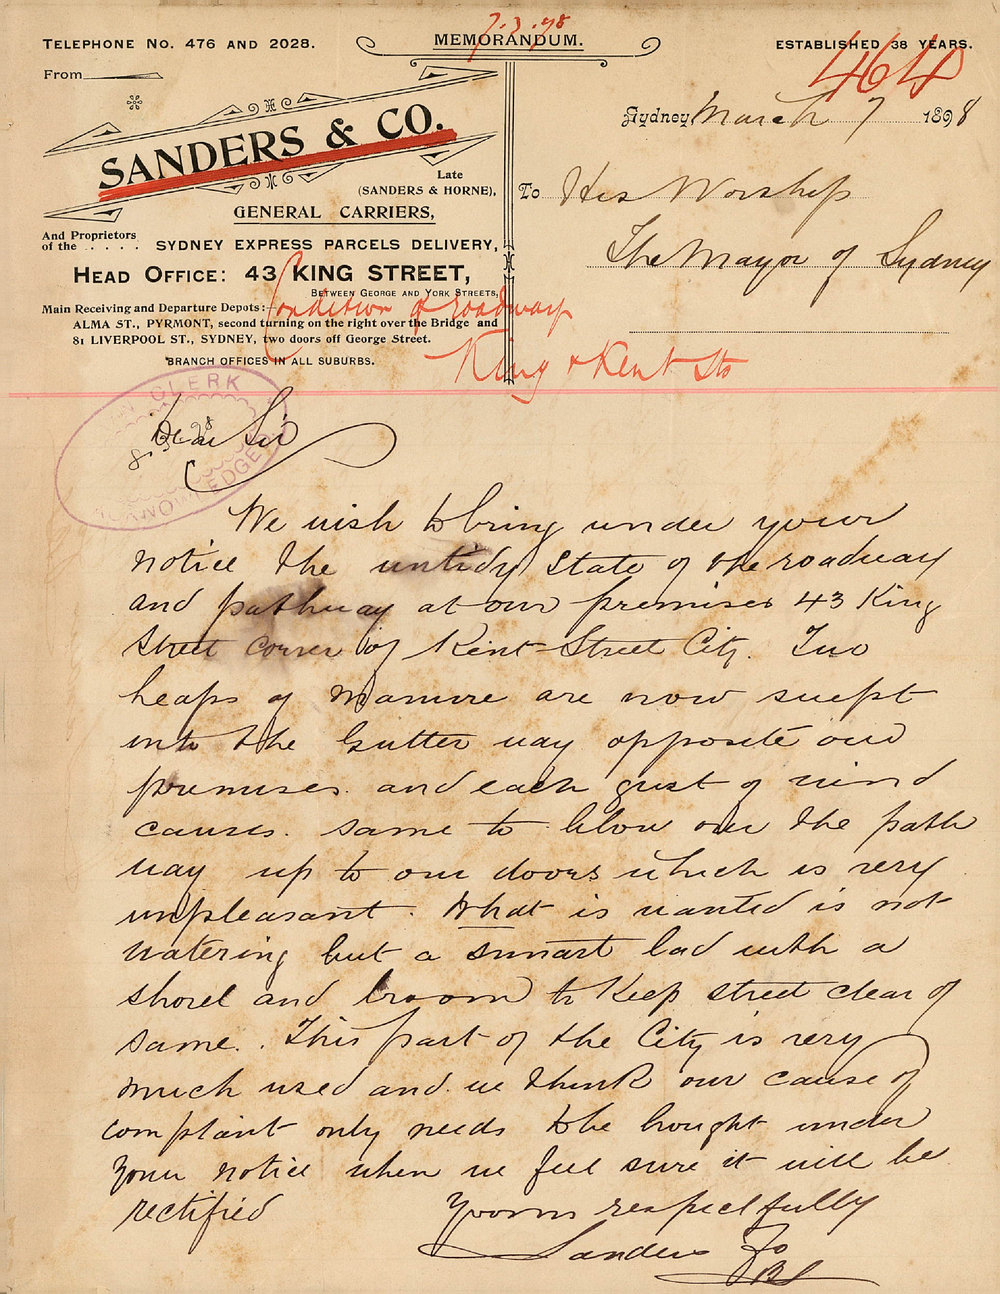 7.3.98
TELEPHONE NO. 476 AND 2028.
MEMORANDUM.
ESTABLISHED 38 YEARS.
From
464
SANDERS & CO.
Sydney, March 7 1898
Late
(SANDERS & HORNE),
To His Worship
GENERAL CARRIERS,
The Mayor of Sydney
And Proprietors
of the . . . . . SYDNEY EXPRESS PARCELS DELIVERY,
HEAD OFFICE: 43 KING STREET,
BETWEEN GEORGE AND YORK STREETS,
Main Receiving and Departure Depots:—
ALMA ST., PYRMONT, second turning on the right over the Bridge and
81 LIVERPOOL ST., SYDNEY, two doors off George Street.
BRANCH OFFICES IN ALL SUBURBS.
Condition of roadway
King & Kent Sts
CLERK
8.3.98
ACKNOWLEDGED
Dear Sir
We wish to bring under your
notice the untidy State of the roadway
and pathway at our premises 43 King
Street corner of Kent Street City. Two
heaps of manure are now swept
into the Gutter way opposite our
premises. and each gust of wind
causes. same to blow over the path
way up to our doors which is very
unpleasant. What is wanted is not
watering but a smart lad with a
shovel and broom to keep street clear of
same. This part of the City is very
much used and we think our cause of
complaint only needs to be bought under
your notice when we feel sure it will be
rectified
Yours respectfully
Sanders & Co